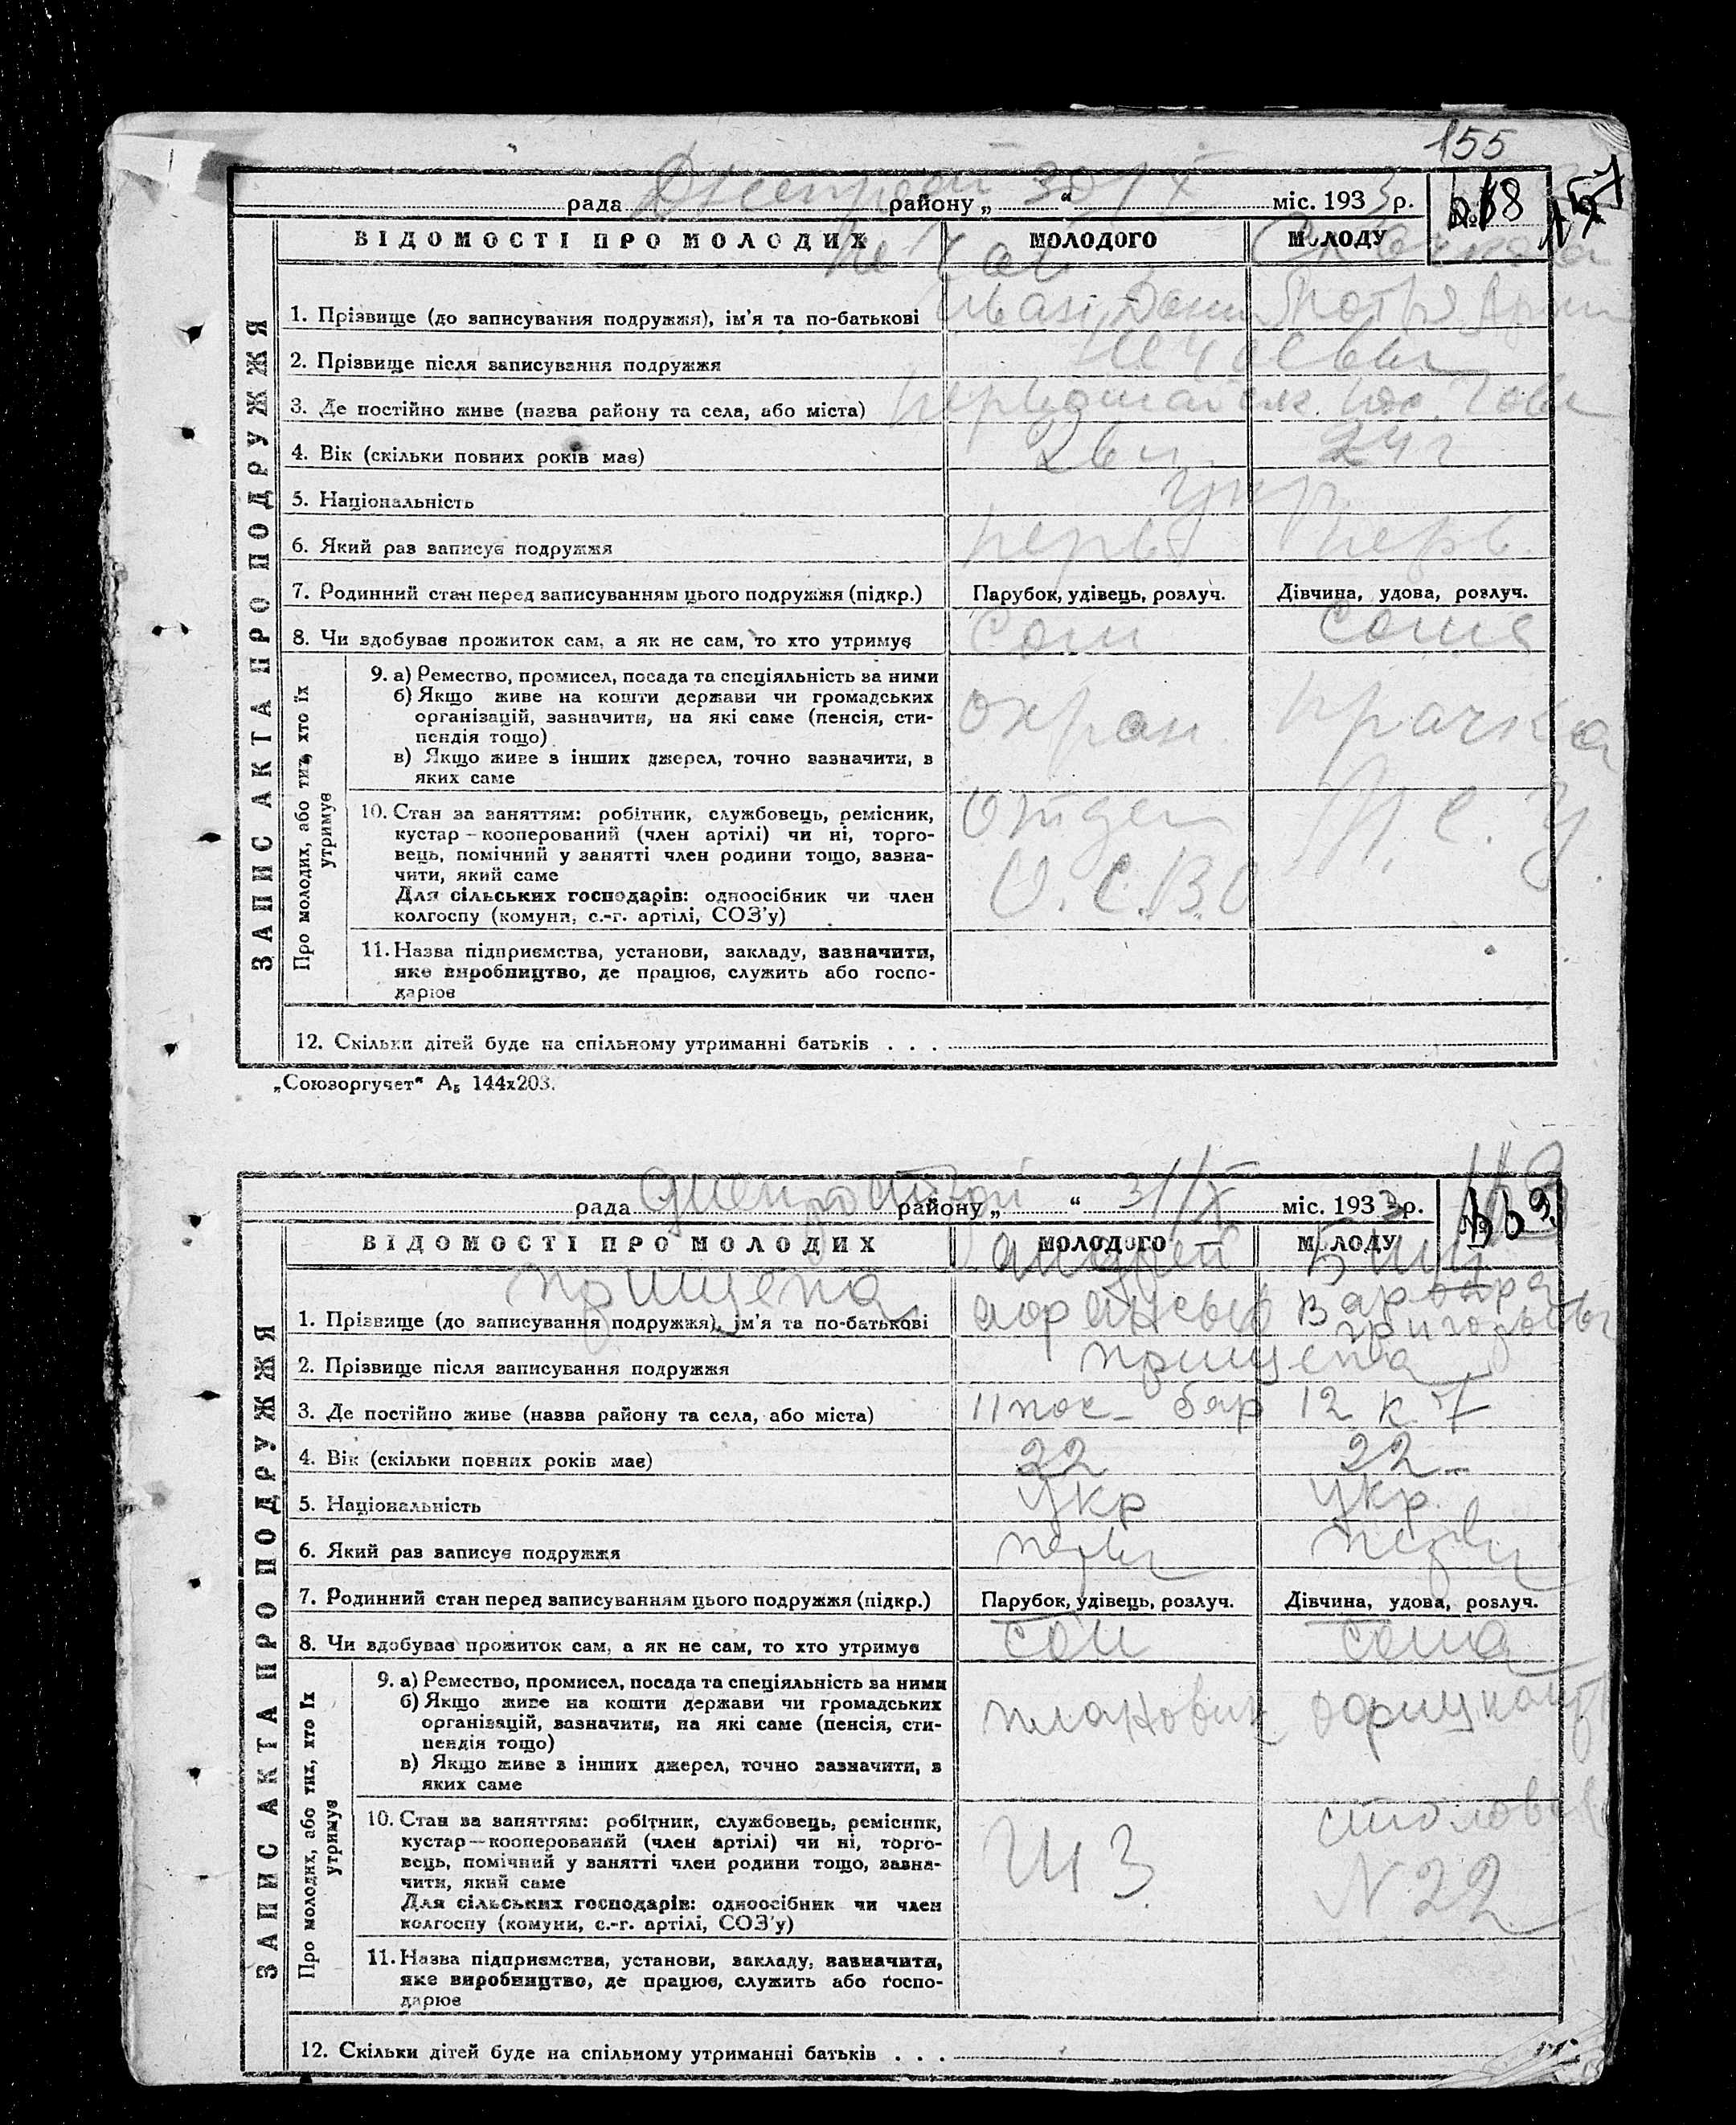 155
рада Днепрост району „ 30/X “ міс. 1933 р. № 118
ВІДОМОСТІ ПРО МОЛОДИХ МОЛОДОГО МОЛОДУ
ЗАПИС АКТА ПРО ПОДРУЖЖЯ
Не Чай
1. Прізвище (до записування подружжя), ім'я та по-батькові Иван
2. Прізвище після записування подружжя Нечаевы
3. Де постійно живе (назва району та села, або міста)
4. Вік (скільки повних років має) 26 24 г
5. Національність укр.
6. Який раз записує подружжя первы перв
7. Родинний стан перед записуванням цього подружжя (підкр.) Парубок, удівець, розлуч. Дівчина, удова, розлуч.
8. Чи здобуває прожиток сам, а як не сам, то хто утримує Сам Сама
Про молодих, або тих, хто їх утримує
9. а) Ремество, промисел, посада та спеціяльність за ними
б) Якщо живе на кошти держави чи громадських
організацій, зазначити, на які саме (пенсія, сти-
пендія тощо)
охран прачка
в) Якщо живе з інших джерел, точно зазначити, в
яких саме
10. Стан за заняттям: робітник, службовець, ремісник,
кустар—кооперований (член артілі) чи ні, торго-
вець, помічний у занятті член родини тощо, зазна-
чити, який саме
Для сільських господарів: одноосібник чи член
колгоспу (комуни, с.-г. артілі, СОЗ'у)
11. Назва підприємства, установи, закладу, зазначити,
яке виробництво, де працює, служить або госпо-
дарює
12. Скільки дітей буде на спільному утриманні батьків . . .
„Союзоргучет“ А₅ 144х203.
рада Днепрострой району „ “ 31/X міс. 1933 р. №
ВІДОМОСТІ ПРО МОЛОДИХ МОЛОДОГО МОЛОДУ
ЗАПИС АКТА ПРО ПОДРУЖЖЯ
прищепа андрей
1. Прізвище (до записування подружжя), ім'я та по-батькові Варвара
григорьевы
2. Прізвище після записування подружжя прищепа
3. Де постійно живе (назва району та села, або міста) 11 пос - бар 12 к 7
4. Вік (скільки повних років має) 22 22
5. Національність укр укр.
6. Який раз записує подружжя первы первы
7. Родинний стан перед записуванням цього подружжя (підкр.) Парубок, удівець, розлуч. Дівчина, удова, розлуч.
8. Чи здобуває прожиток сам, а як не сам, то хто утримує сам сама
Про молодих, або тих, хто їх утримує
9. а) Ремество, промисел, посада та спеціяльність за ними
б) Якщо живе на кошти держави чи громадських
організацій, зазначити, на які саме (пенсія, сти-
пендія тощо)
плановик
в) Якщо живе з інших джерел, точно зазначити, в
яких саме
10. Стан за заняттям: робітник, службовець, ремісник,
кустар—кооперований (член артілі) чи ні, торго-
вець, помічний у занятті член родини тощо, зазна-
чити, який саме
Для сільських господарів: одноосібник чи член
колгоспу (комуни, с.-г. артілі, СОЗ'у)
столовая
N 22
11. Назва підприємства, установи, закладу, зазначити,
яке виробництво, де працює, служить або госпо-
дарює
12. Скільки дітей буде на спільному утриманні батьків . . .